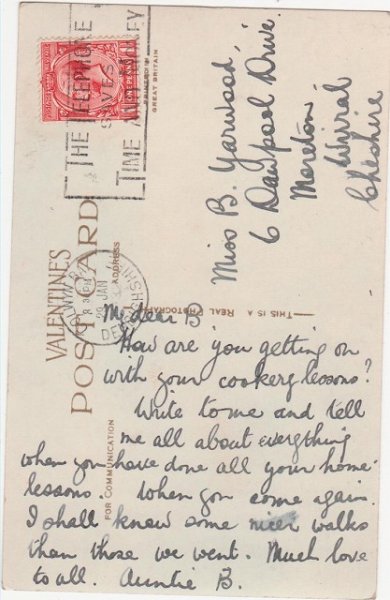 THE TELEPHONE
SAVES
TIME AND MONEY
PRINTED IN
GREAT BRITAIN
VALENTINES
POST CARD
ADDRESS
COLWYN BAY
3 30 PM
JAN
DENBIGHSHIRE
THIS IS A REAL PHOTOGRAPH
FOR COMMUNICATION
Miss B. Yarwood,
6 Dawpool Drive.
Moreton,
Wirral
Cheshire
My dear B
How are you getting on
with your cookery lessons?
Write to me and tell
me all about everything
when you have done all your home-
lessons. When you come again
I shall know some nicer walks
than those we went. Much love
to all. Auntie B.